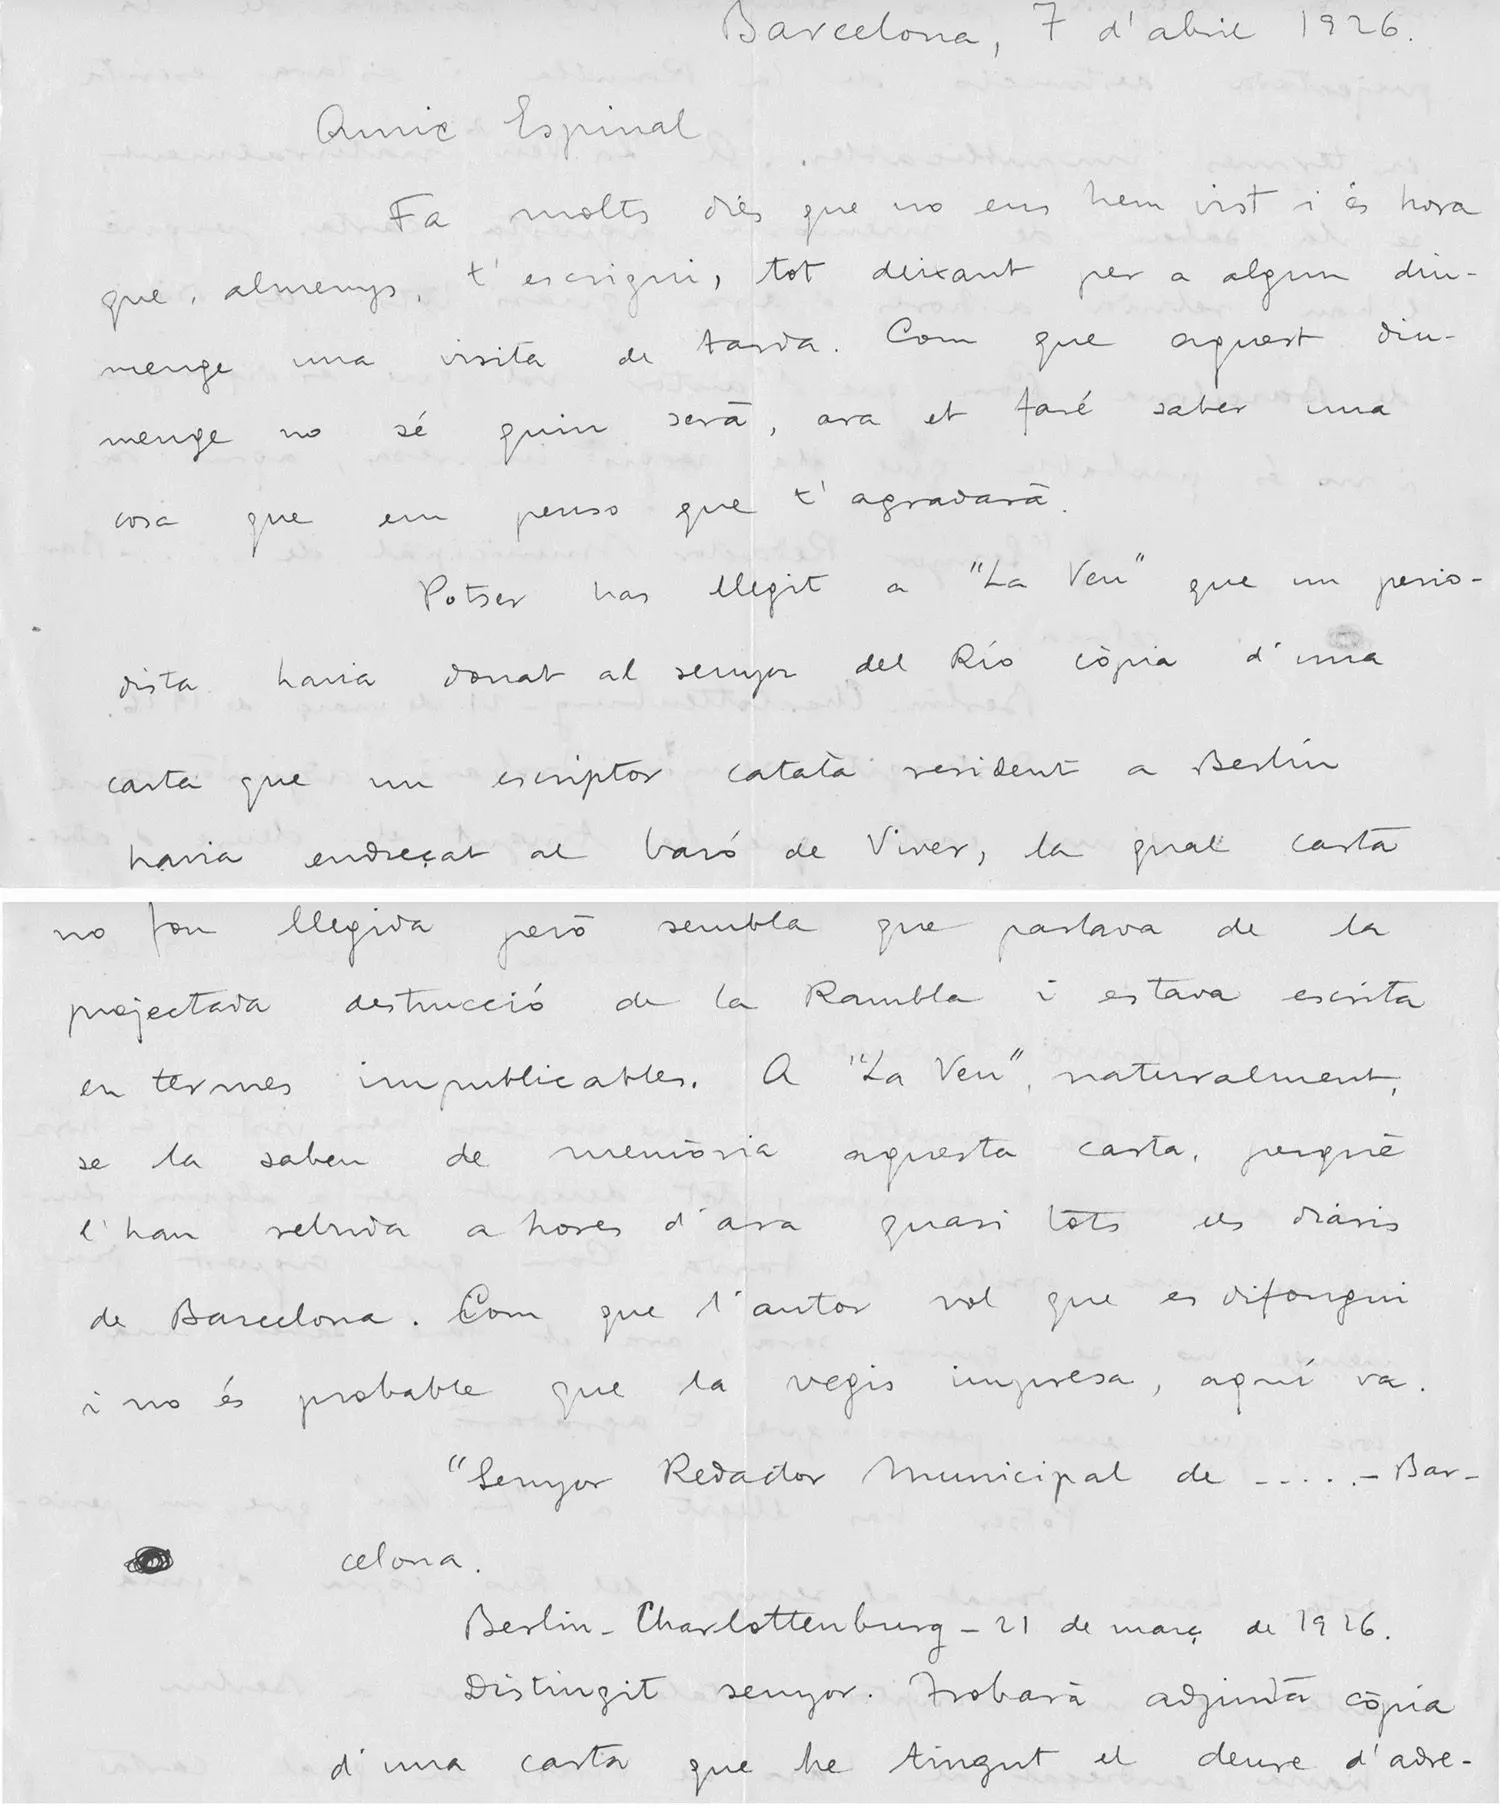 Barcelona, 7 d'abril 1926.
Amic Espinal
Fa molts dies que no ens hem vist i és hora
que, almenys, t'escrigui, tot deixant per a algun diu-
menge una visita de tarda. Com que aquest diu-
menge no sé quin serà, ara et faré saber una
cosa que em penso que t'agradarà.
Potser has llegit a "La Veu" que un perio-
dista havia donat al senyor del Río còpia d'una
carta que un escriptor català resident a Berlín
havia endreçat al baró de Viver, la qual carta
no fou llegida però sembla que parlava de la
projectada destrucció de la Rambla i estava escrita
en termes impublicables. A "La Veu", naturalment,
se la saben de memòria aquesta carta, perquè
l'han rebuda a hores d'ara quasi tots els diaris
de Barcelona. Com que l'autor vol que es difongui
i no és probable que la vegis impresa, aquí va.
"Senyor Redactor Municipal de - . . . . - Bar-
celona.
Berlin - Charlottenburg - 21 de març de 1926.
Distingit senyor. Trobarà adjunta còpia
d'una carta que he tingut el deure d'adre-